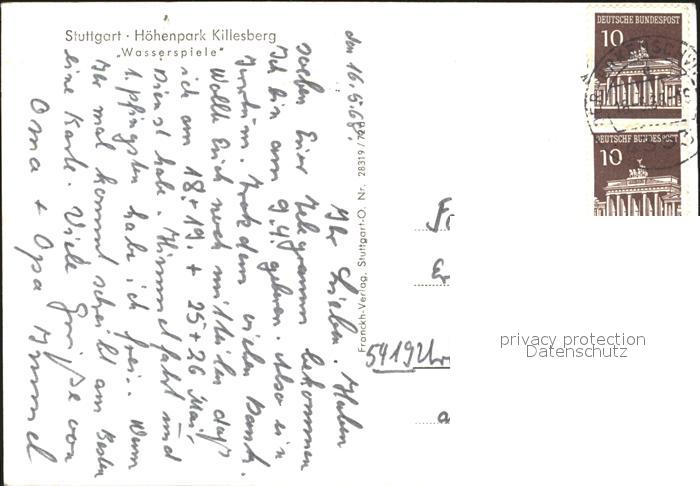 Stuttgart · Höhenpark Killesberg
„Wasserspiele"
den 16.5.68
Ihr Lieben. Haben
soeben Euer Telegramm bekommen
Ich bin am 9.4. geboren. Also ein
Irrtum. Trotzdem vielen Dank.
Wollte Euch noch mitteilen daß
ich am 18.+19. + 25+26 Mai,
Dienst habe. Himmelfahrt und
1. Pfingsten habe ich frei. Wenn
Ihr mal kommt schreibt am Besten
eine Karte. Viele Grüße von
Oma + Opa
Franckh-Verlag, Stuttgart-O, Nr. 28319/728
DEUTSCHE BUNDESPOST
10
DEUTSCHE BUNDESPOST
10
5419
privacy protection
Datenschutz